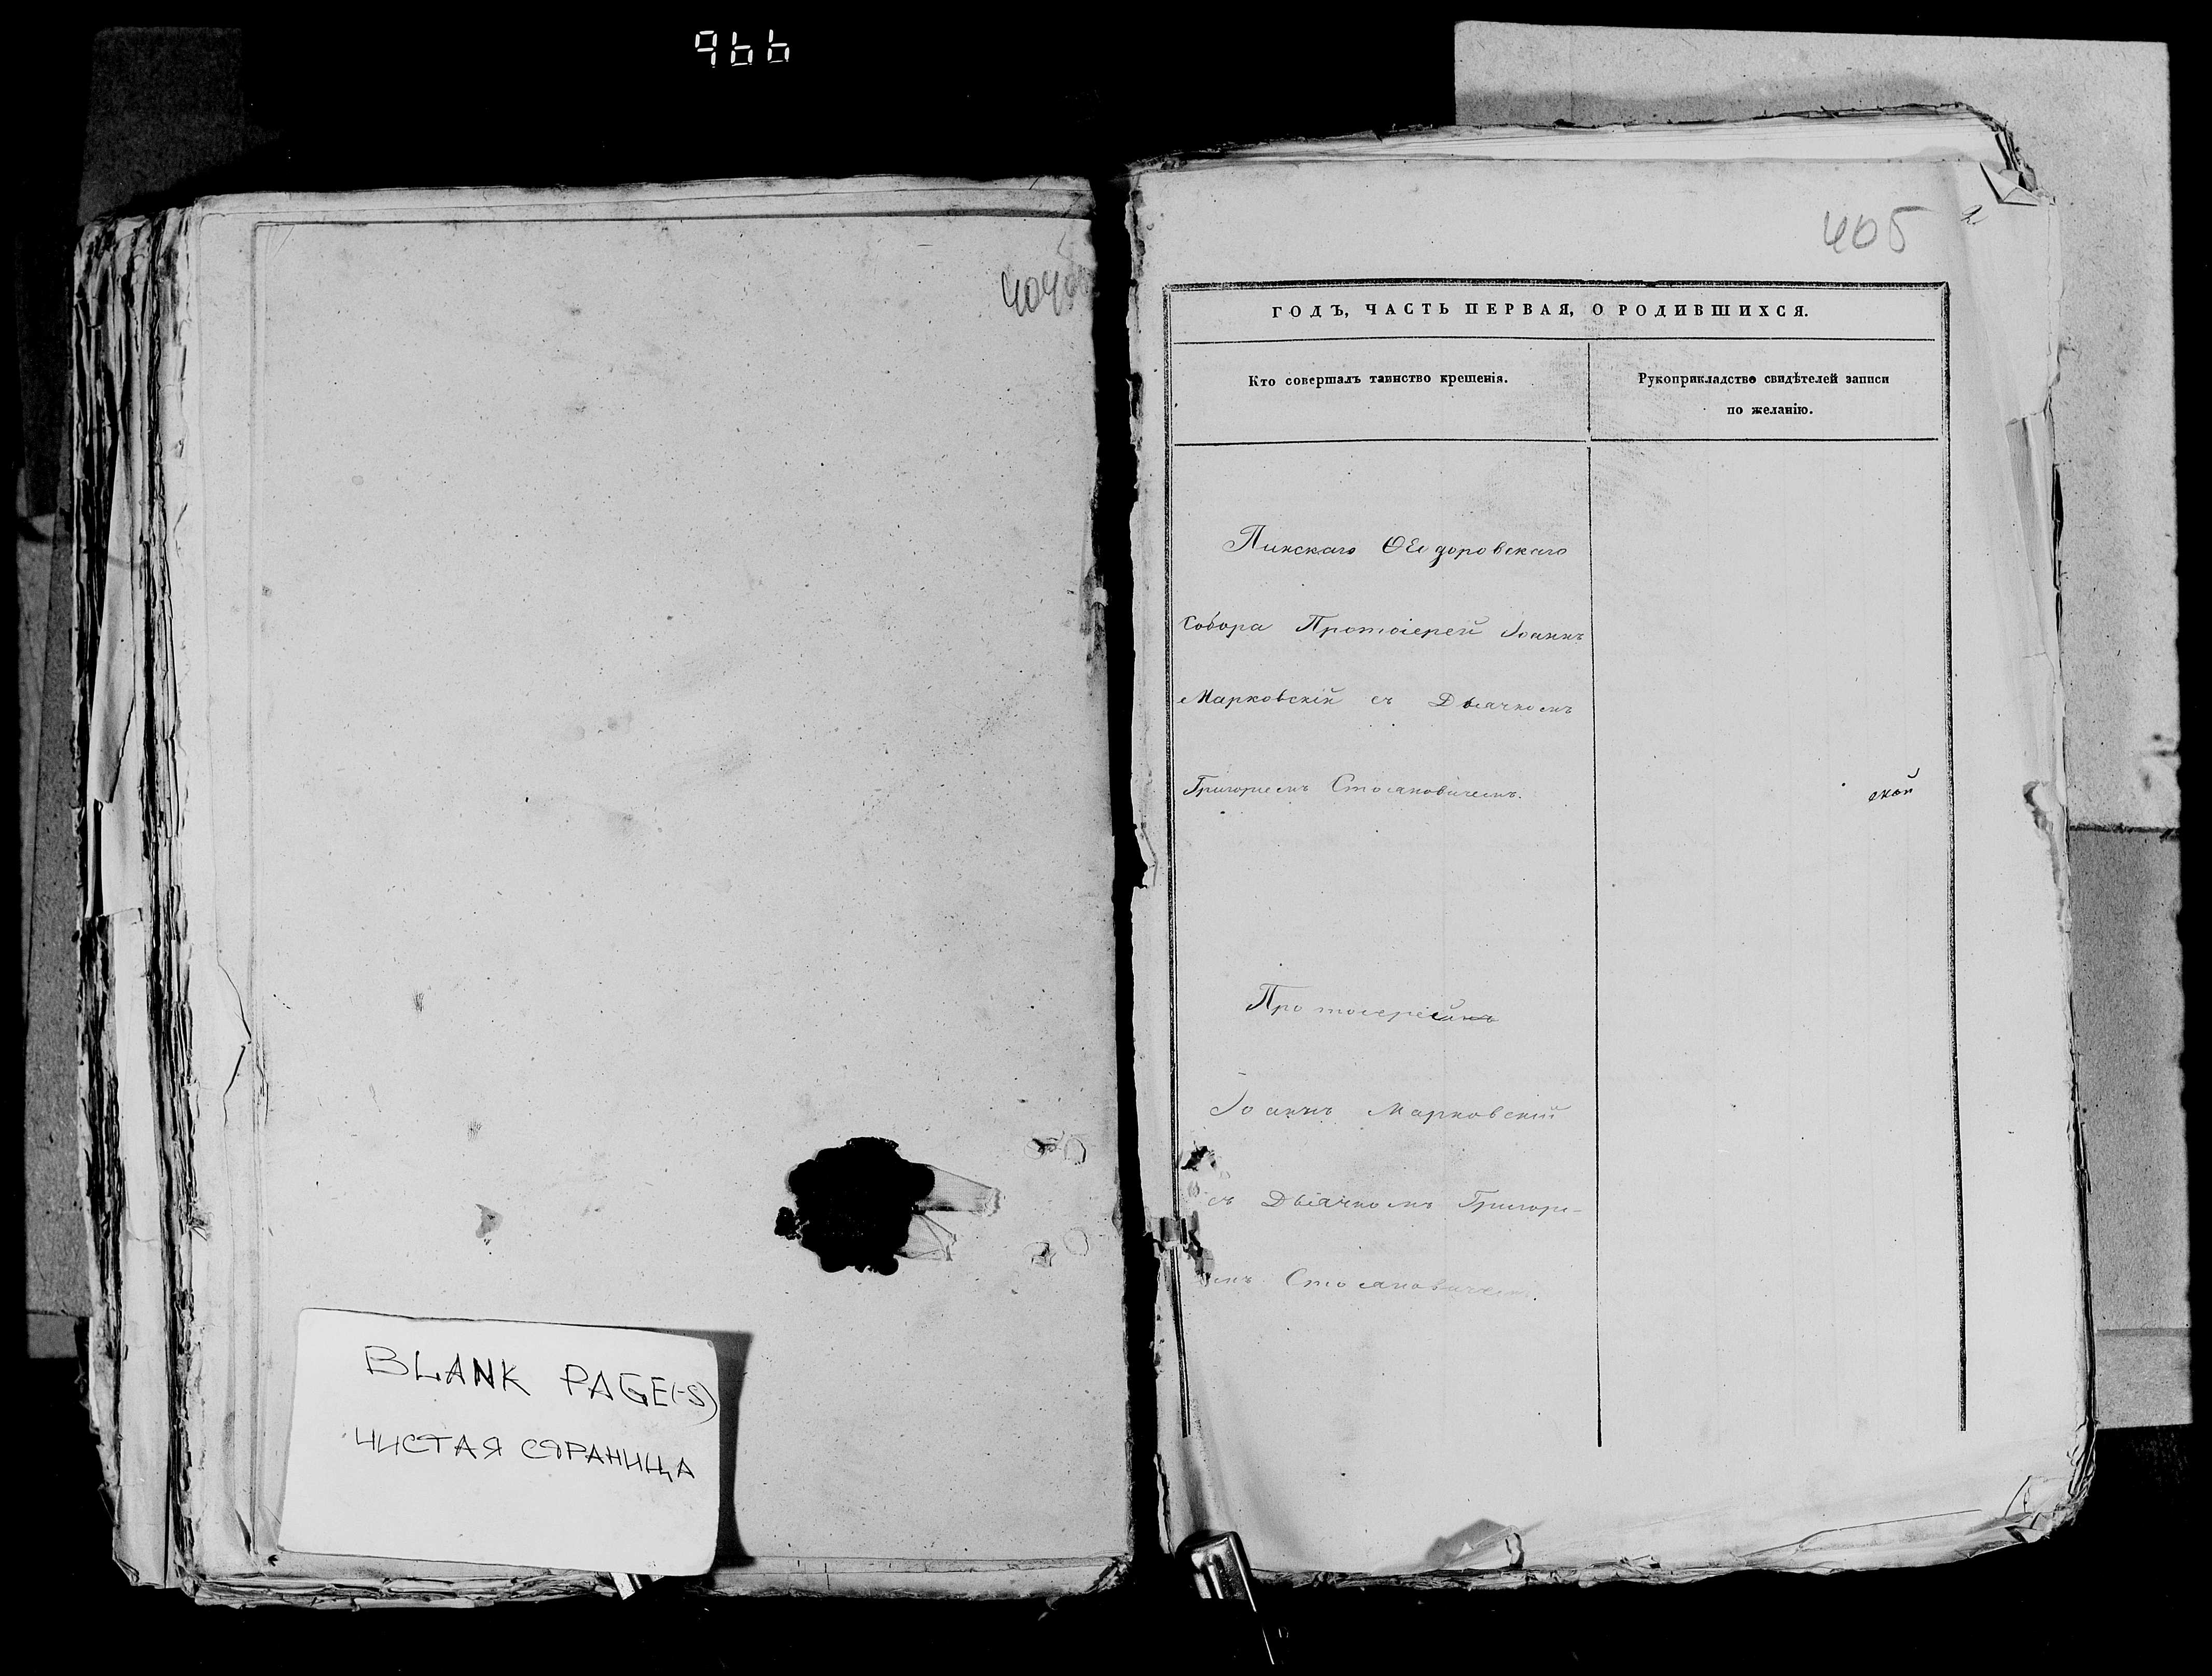 966
404об
BLANK PAGE(-S)
ЧИСТАЯ СТРАНИЦА
405
2
ГОДЪ, ЧАСТЬ ПЕРВАЯ, О РОДИВШИХСЯ.
Кто совершалъ таинство крещенія.
Рукоприкладство свидѣтелей записи
по желанію.
Пинскаго Ѳеодоровскаго
Собора Протоіерей Іоаннъ
Марковскій съ Дьячкомъ
Григориемъ Стояновичемъ.
ской
Протоіерей
Іоаннъ Марковскій
съ Дьячкомъ Григори-
емъ Стояновичем.